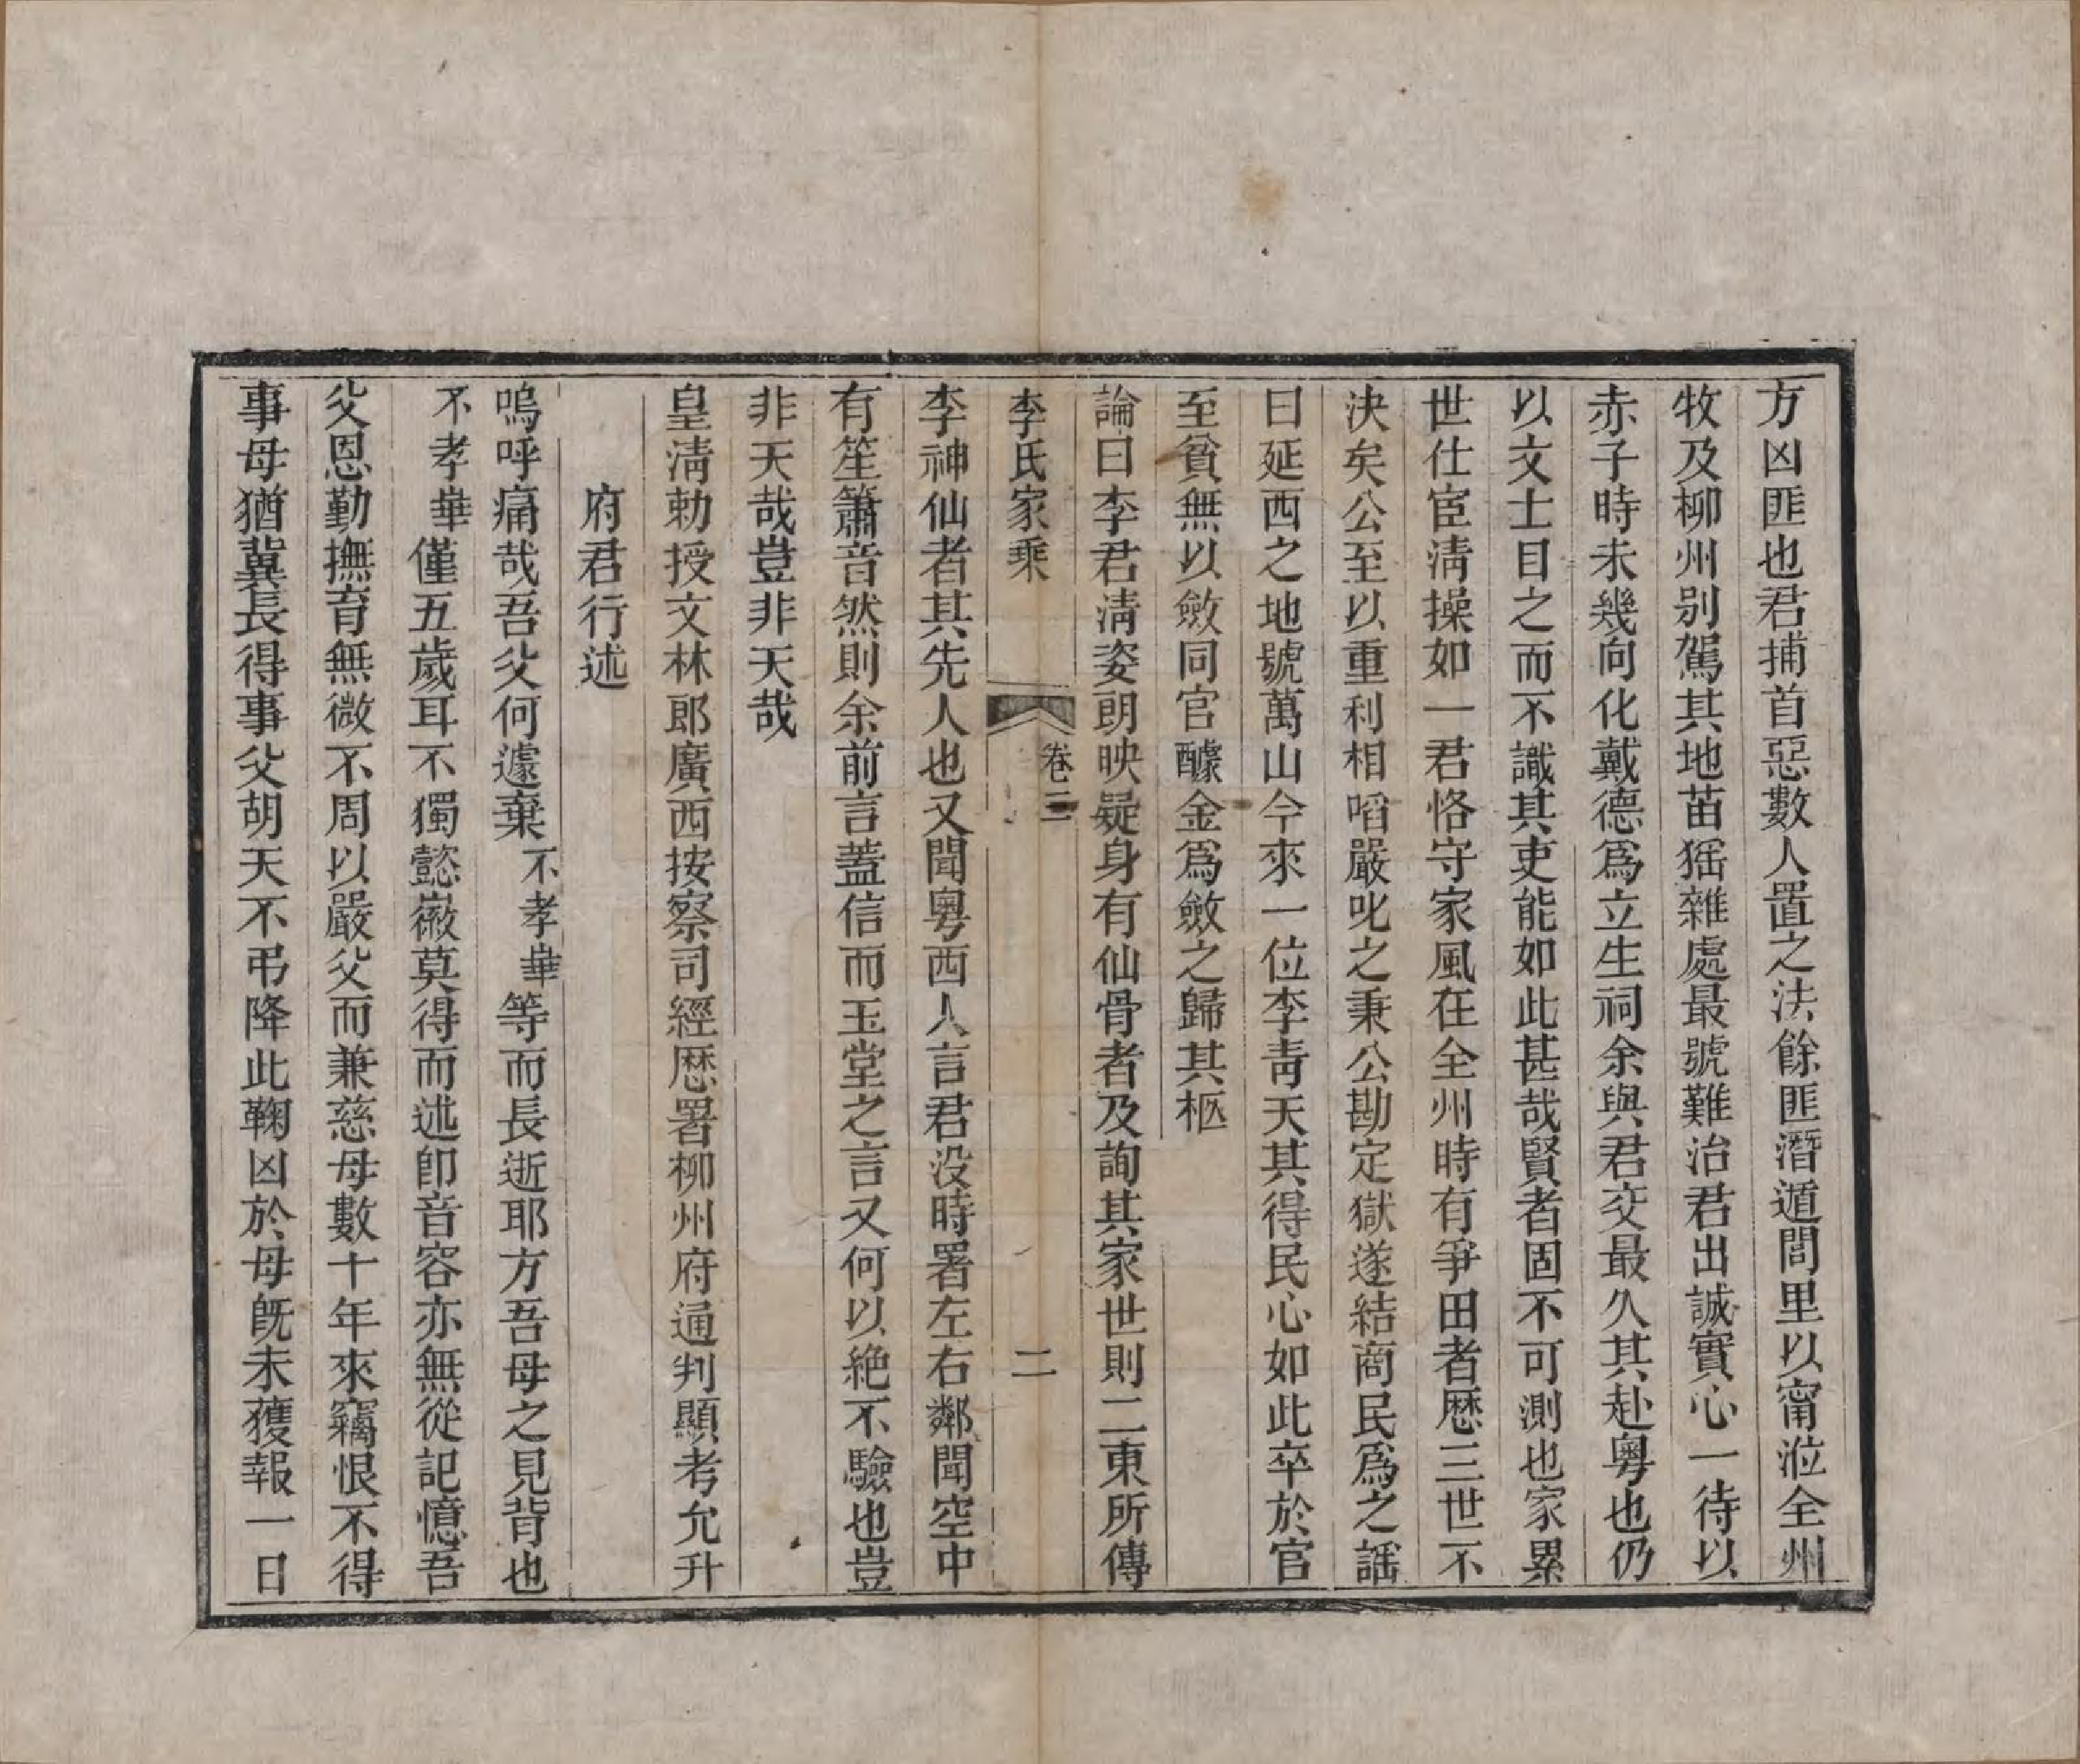 方凶匪也君捕首惡數人置之法餘匪潛遁閭里以甯涖全州
牧及柳州別駕其地苗猺雜處最號難治君出誠實心一待以
赤子時未幾向化戴德爲立生祠余與君交最久其赴粵也仍
以文士目之而不識其吏能如此甚哉賢者固不可測也家累
世仕宦淸操如一君恪守家風在全州時有爭田者歴三世不
決矣公至以重利相啗嚴叱之秉公勘定獄遂結商民爲之謡
曰延西之地號萬山今來一位李靑天其得民心如此卒於官
至貧無以斂同官醵金爲斂之歸其柩
論曰李君淸姿朗映疑身有仙骨者及詢其家世則二東所傳
李氏家乘
卷三
二
李神仙者其先人也又聞粵西人言君没時署左右鄰聞空中
有笙簫音然則余前言蓋信而玉堂之言又何以絶不驗也豈
非天哉豈非天哉
皇淸勅授文林郎廣西按察司經歴署柳州府通判顯考允升
府君行述
嗚呼痛哉吾父何遽棄不孝華等而長逝耶方吾母之見背也
不孝華僅五歲耳不獨懿徽莫得而述卽音容亦無從記憶吾
父恩勤撫育無微不周以嚴父而兼慈母數十年來竊恨不得
事母猶冀長得事父胡天不弔降此鞠凶於母旣未獲報一日